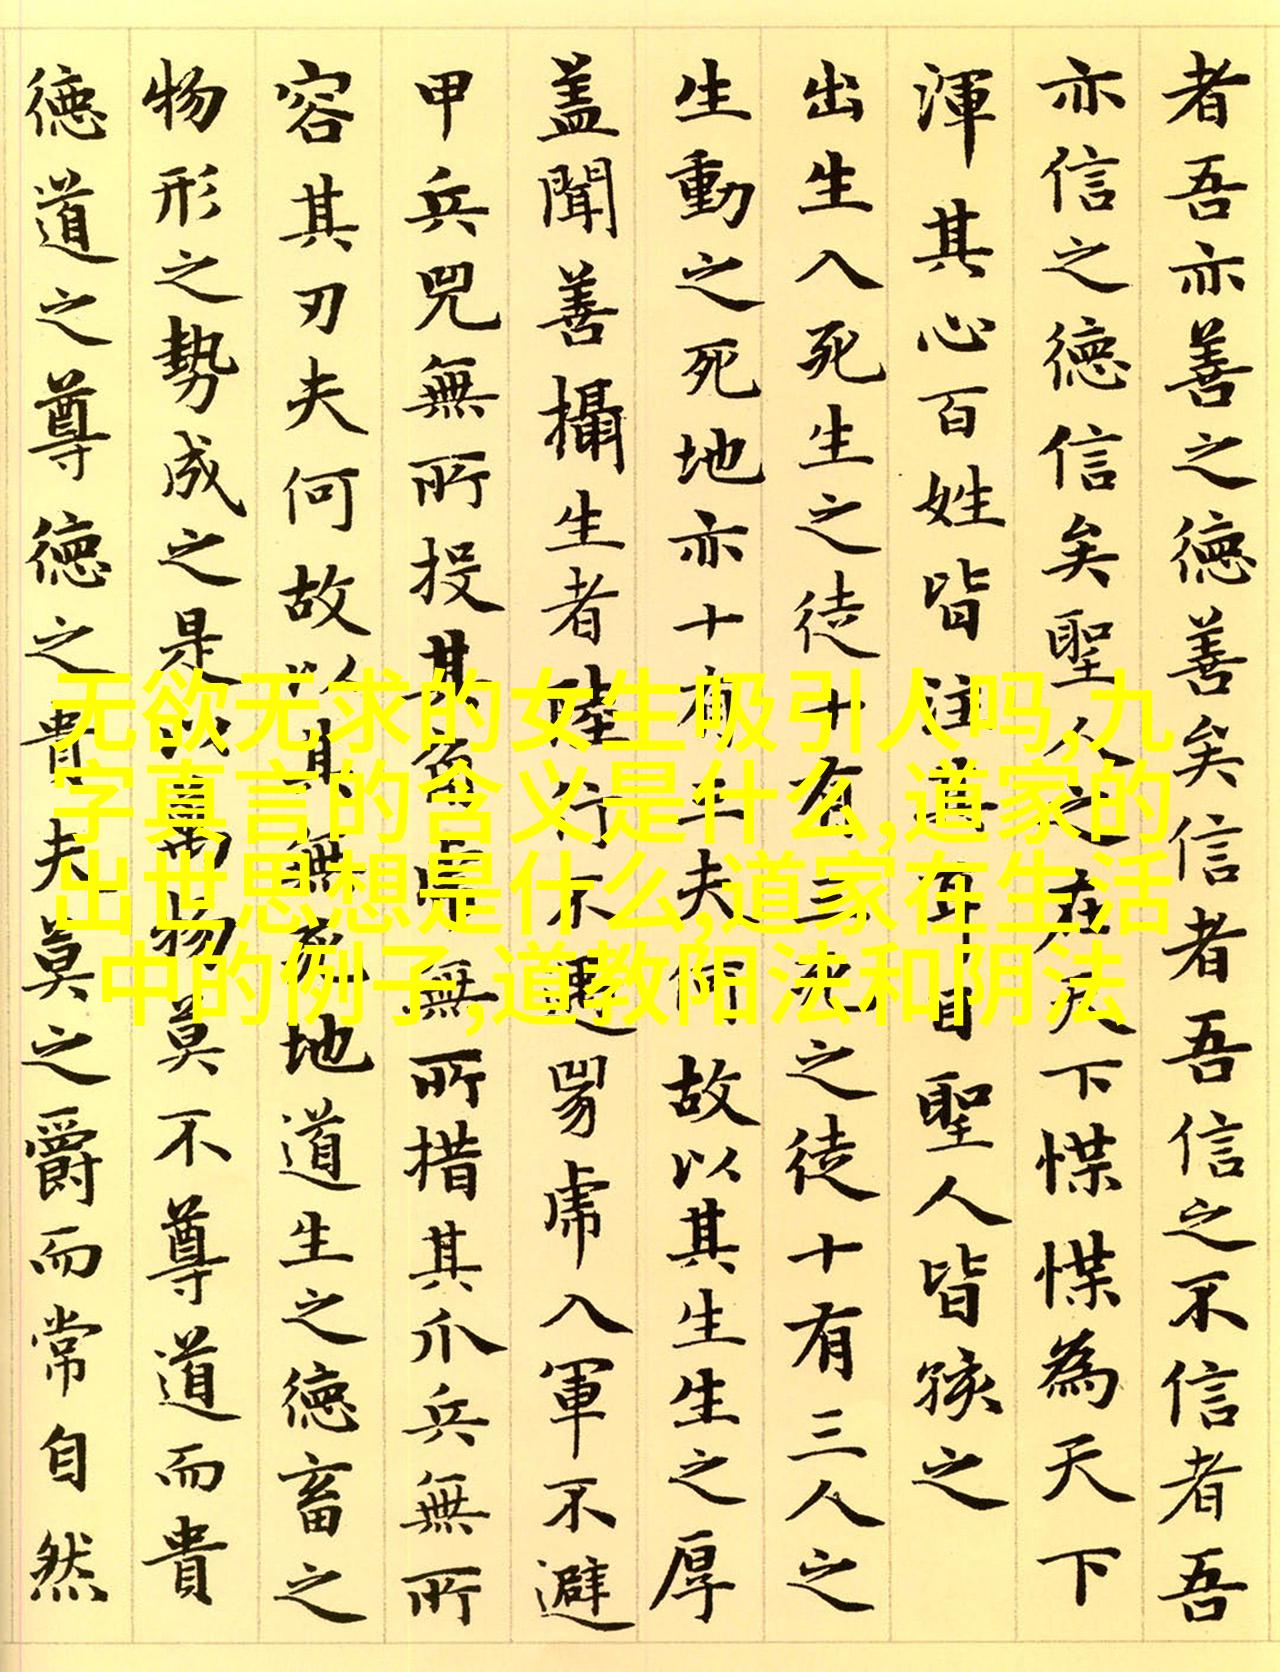 者吾亦善之德善矣信者吾信之不信者吾
亦信之德信矣聖人之在天下惵惵為天下
渾其心百姓皆注其耳目聖人皆孩之
出生入死生之徒十有三死之徒十有三人之
生動之死地亦十有三夫何故以其生生之厚
蓋聞善攝生者陸行不遇兕虎入軍不避
甲兵兕無所投其角虎無所措其爪兵無所
容其刃夫何故以其無死地道生之德畜之
物形之勢成之是以萬物莫不尊道而貴
德道之尊德之貴夫莫之爵而常自然
无欲无求的女生吸引人吗,九
字真言的含义是什么,道家的
出世思想是什么,道家在生活
中的例子,道教阳法和阴法